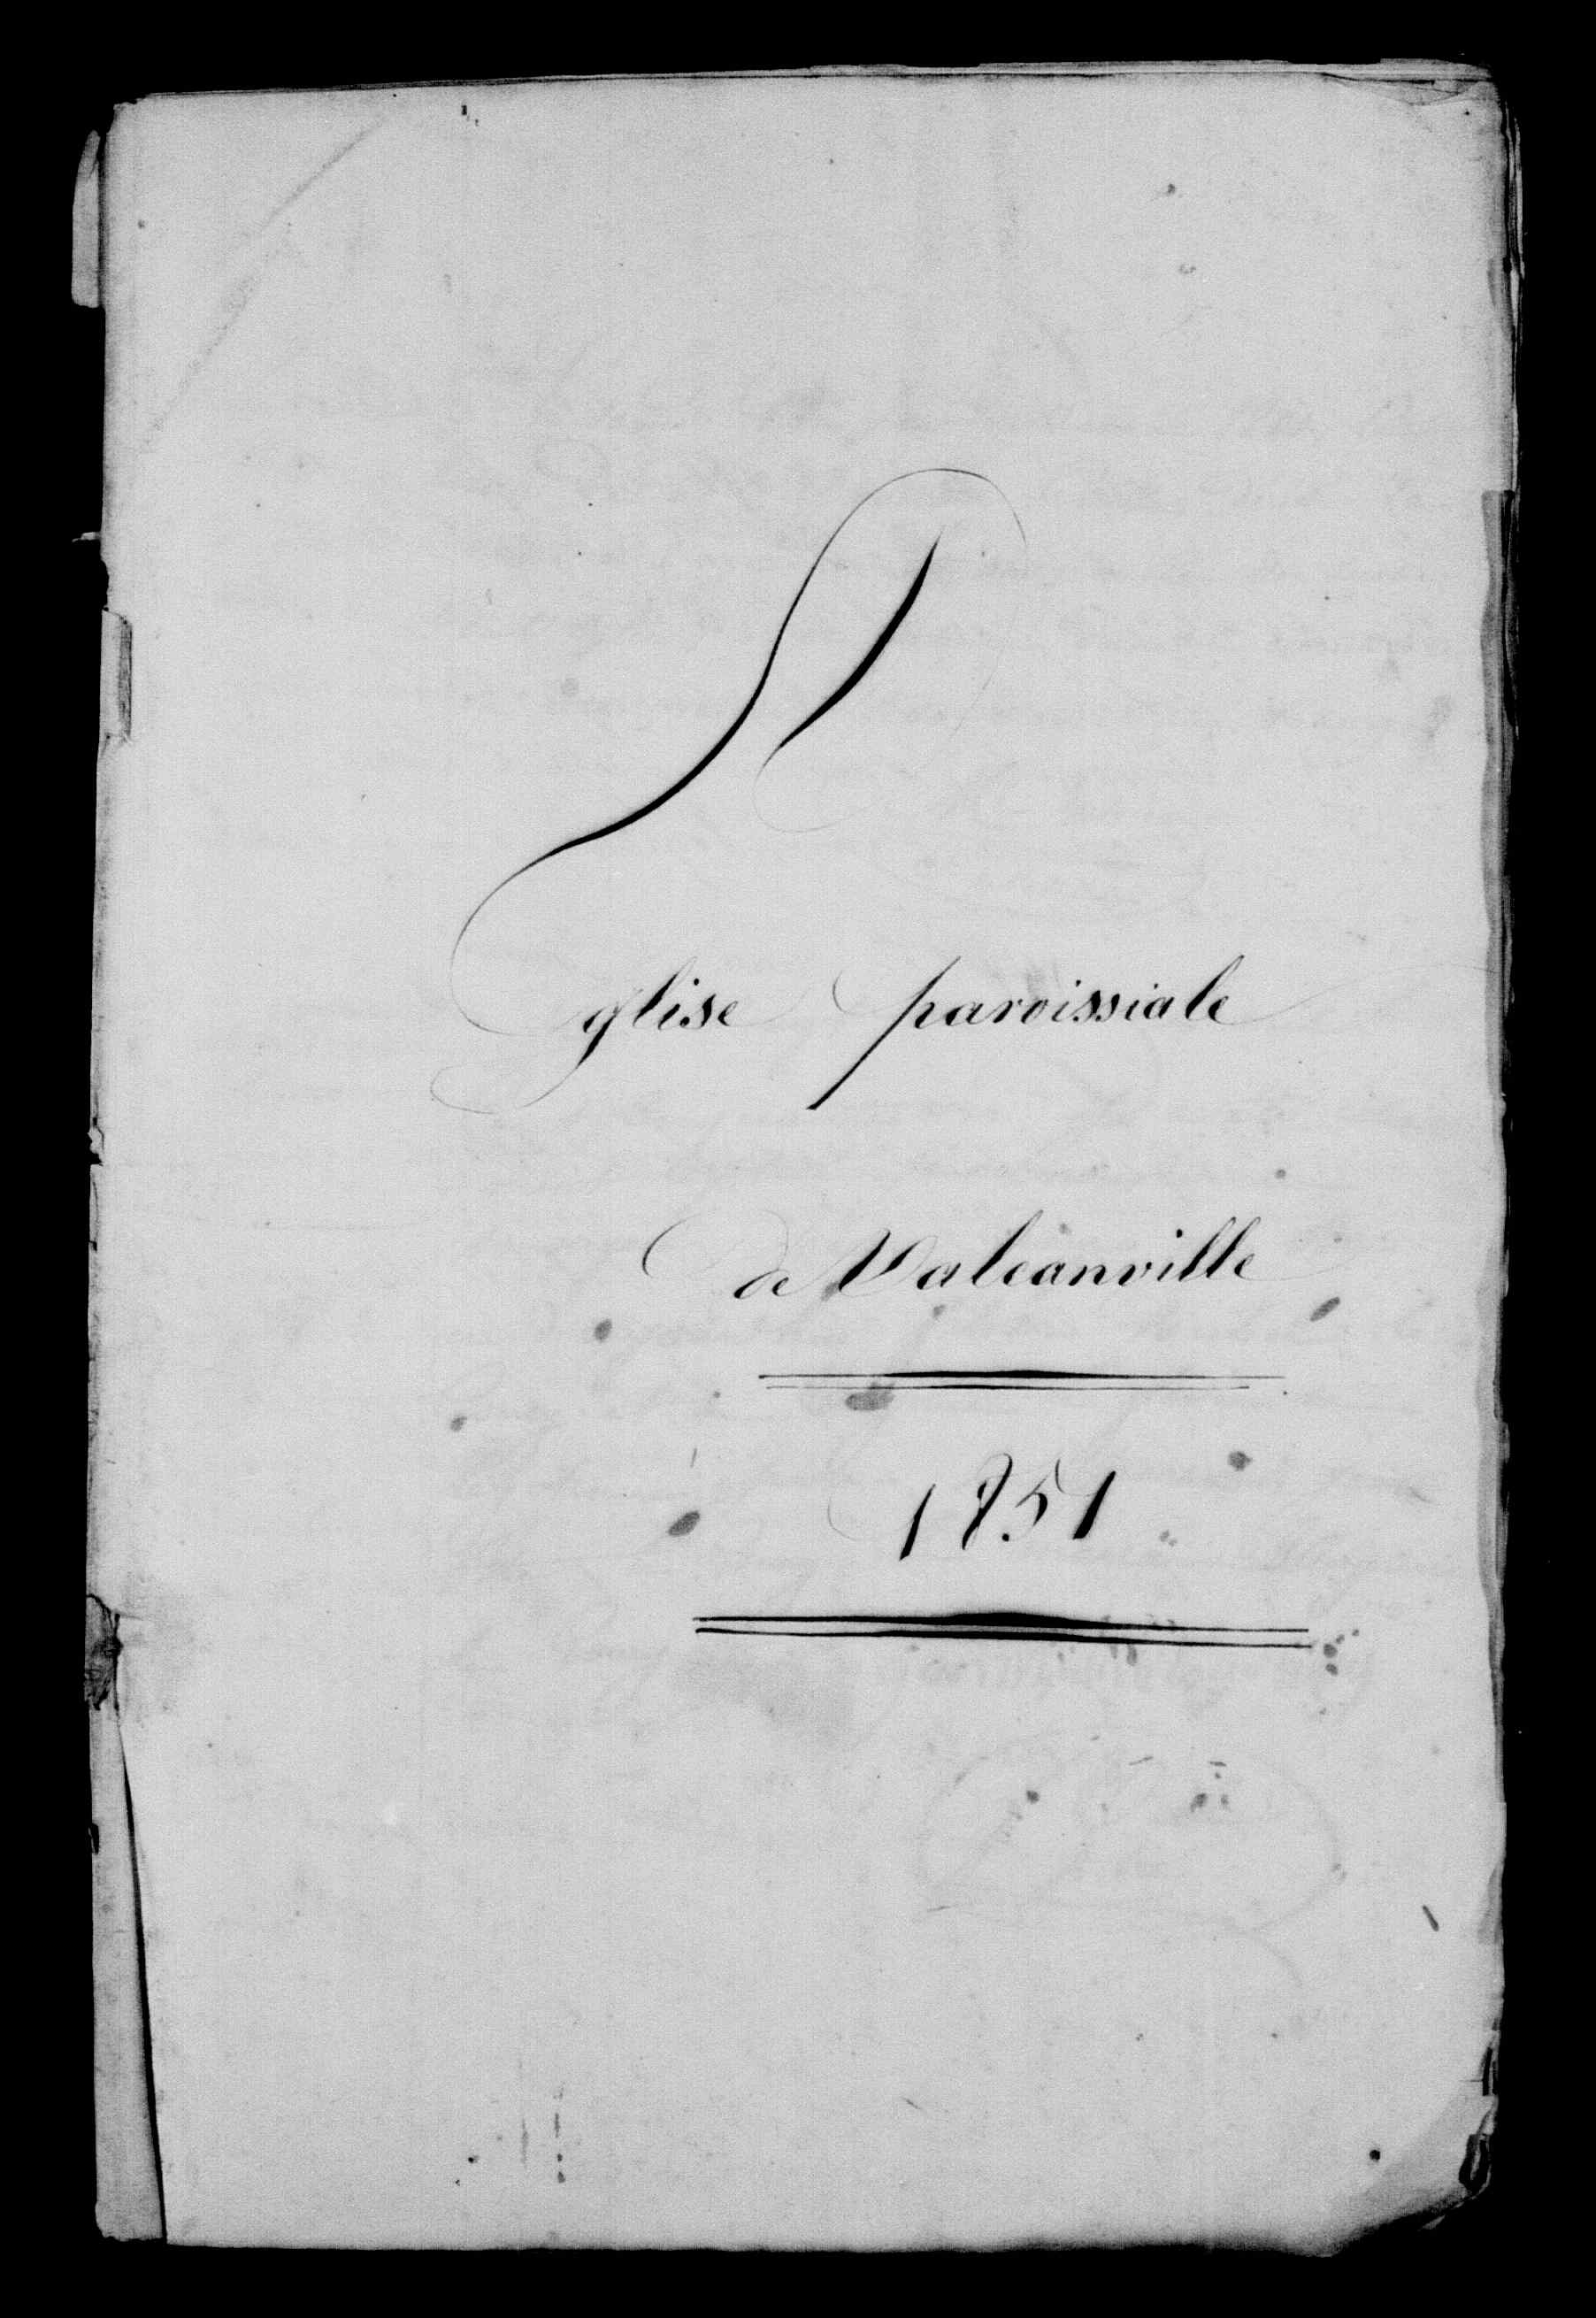 Eglise paroissiale
de Valcanville
1851